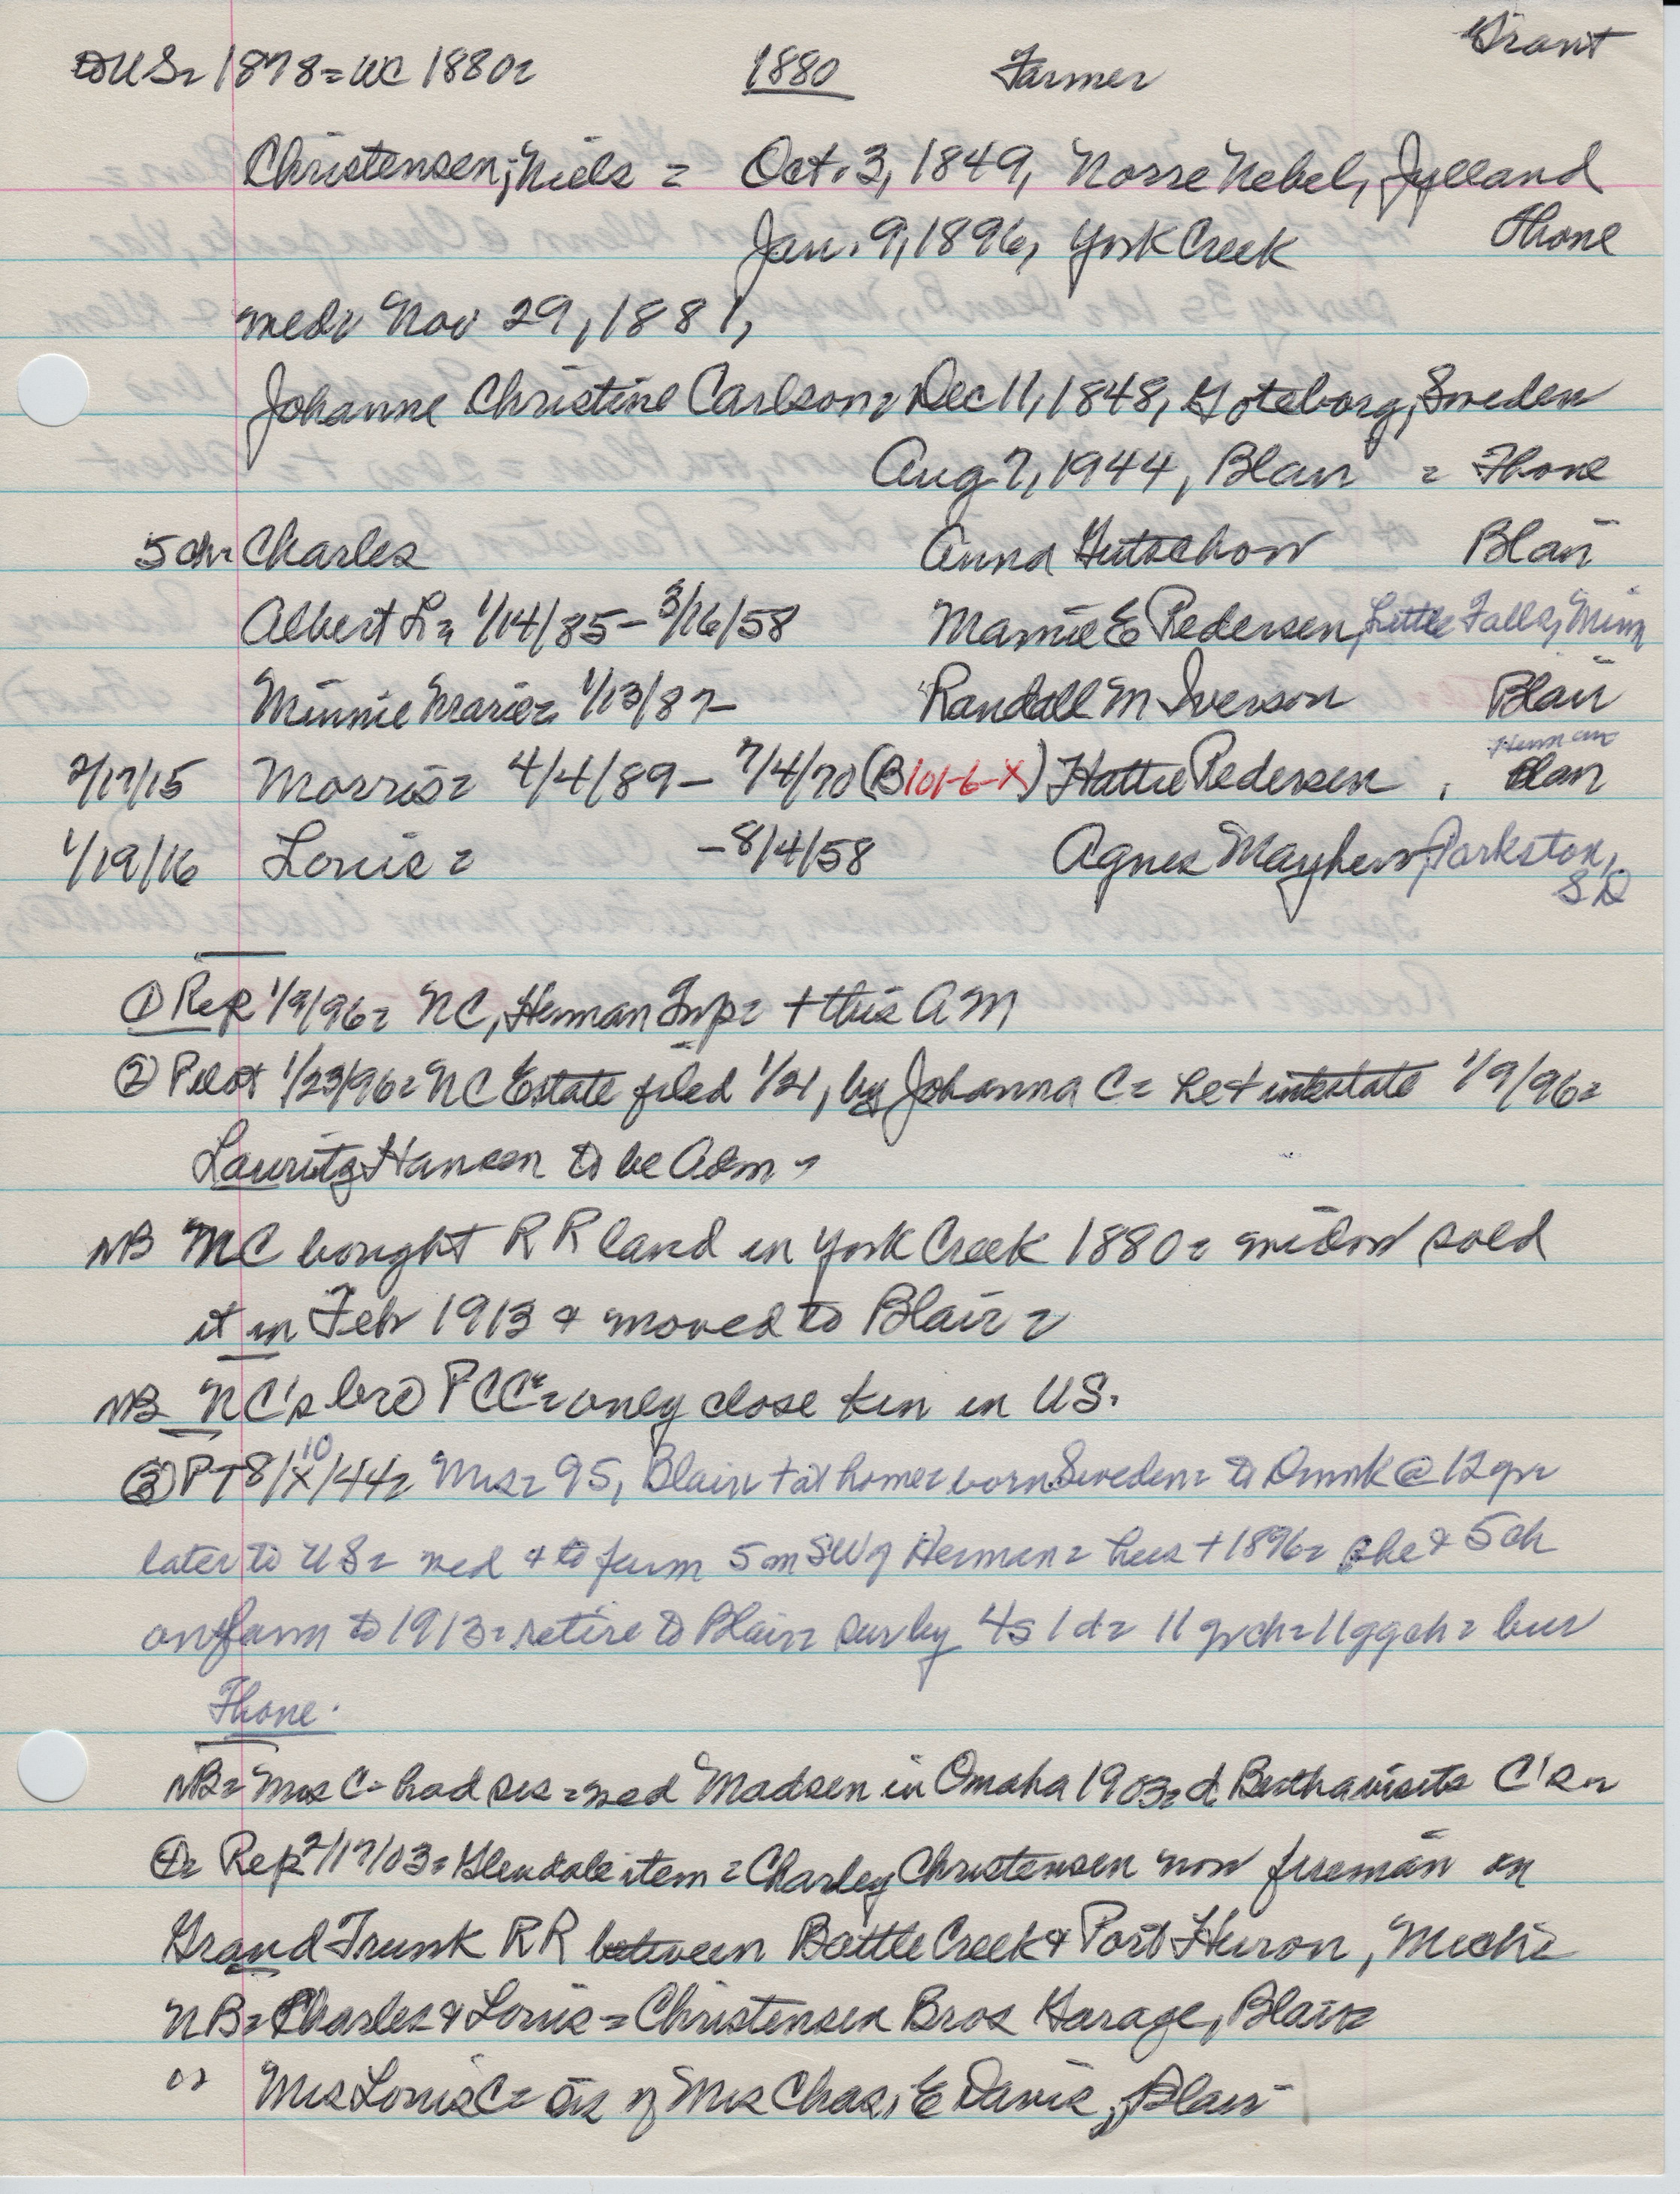 to US= 1878= WC 1880= 1880 Farmer Grant
Christensen, Niels = Oct. 3, 1849, Norre Nebel, Jylland
Jan. 9, 1896, York Creek Thone
med= Nov 29, 1881,
Johanne Christine Carlson= Dec 11, 1848, Goteborg, Sweden
Aug 7, 1944, Blair = Thone
5 ch= Charles Anna Gutschow Blair
Albert L= 1/14/85 – 3/16/58 Mamie E Pedersen, Little Falls, Minn
Minnie Marie= 1/13/87– Randall M Iverson Blair
Herman
2/17/15 Morris= 4/4/89 – 7/4/70 (B101-6-X) Hattie Pedersen , Blair
1/19/16 Louis = – 8/4/58 Agnes Mayhew, Parkston,
SD
① Rep 1/9/96= NC, Herman Twp= + this AM
② Pilot 1/23/96= NC Estate filed 1/21, by Johanna C= he + intestate 1/9/96=
Lauritz Hansen to be Adm =
NB NC bought RR land in York Creek 1880= widow sold
it in Feb 1913 & moved to Blair =
NB NC's bro PCC= only close kin in US.
③ PT 8/10/44= Mrs= 95, Blair + at home= born Sweden= to Dnmk @ 12 yr=
later to US= med & to farm 5 m SW of Herman= hus + 1896= she & 5 ch
on farm to 1913= retire to Blair= sur by 4s 1d= 11 grch= 11 ggch= bur
Thone.
NB= Mrs C= had sis = med Madsen in Omaha 1903= d Bertha visits C's=
④= Rep 2/17/03= Glendale item = Charley Christensen now fireman on
Grand Trunk RR between Battle Creek & Port Huron, Mich=
NB= Charles & Louis = Christensen Bros Garage, Blair=
" Mrs Louis C= sis of Mrs Chas. E Davis, Blair